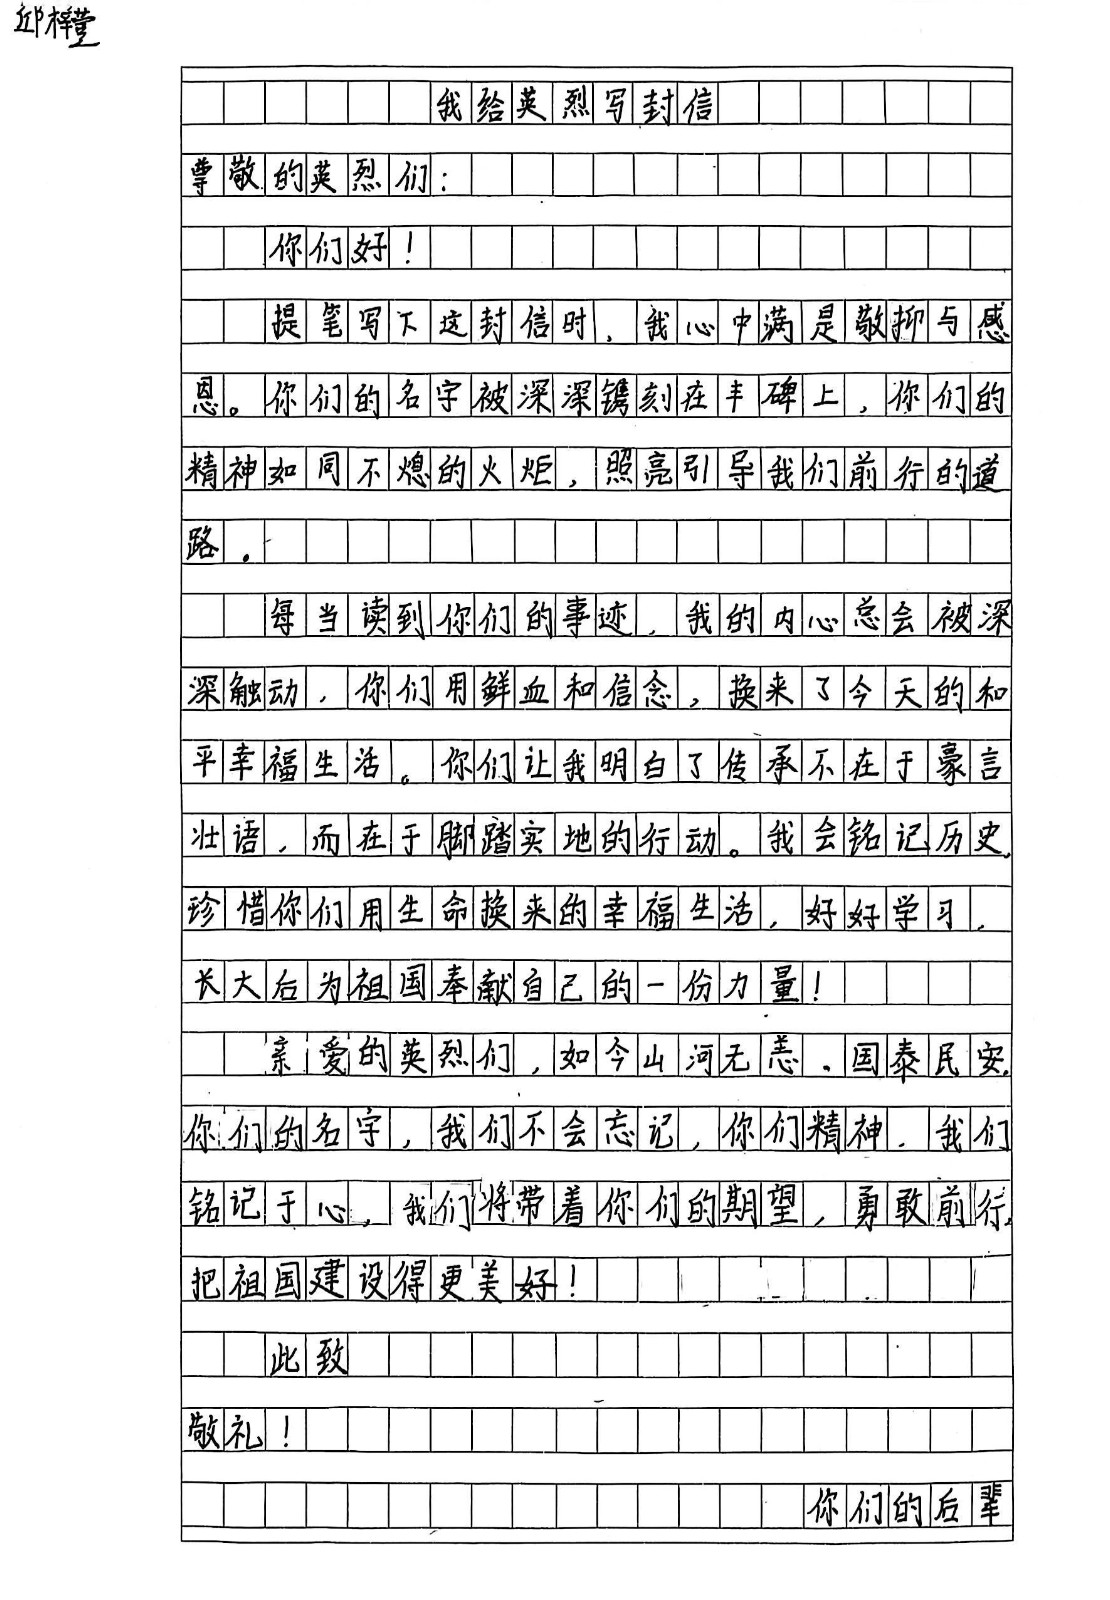 邱梓萱
我给英烈写封信
尊敬的英烈们：
你们好！
提笔写下这封信时，我心中满是敬抑与感
恩。你们的名字被深深镌刻在丰碑上，你们的
精神如同不熄的火炬，照亮引导我们前行的道
路。
每当读到你们的事迹，我的内心总会被深
深触动，你们用鲜血和信念，换来了今天的和
平幸福生活。你们让我明白了传承不在于豪言
壮语，而在于脚踏实地的行动。我会铭记历史，
珍惜你们用生命换来的幸福生活，好好学习，
长大后为祖国奉献自己的一份力量！
亲爱的英烈们，如今山河无恙。国泰民安，
你们的名字，我们不会忘记，你们精神，我们
铭记于心，我们将带着你们的期望，勇敢前行，
把祖国建设得更美好！
此致
敬礼！
你们的后辈